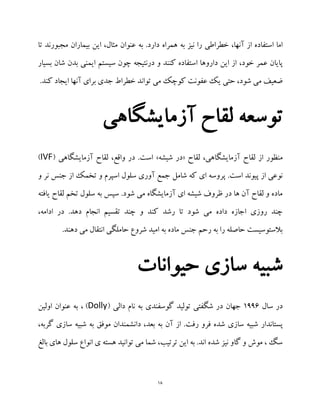 اما استفاده از آنها، خطراطی را نیز به همراه دارد. به عنوان مثال، این بیماران مجبورند تا
پایان عمر خود، از این داروها استفاده کنند و درنتیجه چون سیستم ایمنی بدن شان بسیار
ضعیف می شود، حتی یک عفونت کوچک می تواند خطراط جدی برای آنها ایجاد کند.
توسعه لقاح آزمایشگاهی
منظور از لقاح آزمایشگاهی، لقاح «در شیشه» است. در واقع، لقاح آزمایشگاهی (IVF)
نوعی از پیوند است. پروسه ای که شامل جمع آوری سلول اسپرم و تخمک از جنس نر و
ماده و لقاح آن ها در ظروف شیشه ای آزمایشگاه می شود. سپس به سلول تخم لقاح یافته
چند روزی اجازه داده می شود تا رشد کند و چند تقسیم انجام دهد. در ادامه،
بلاستوسیست حاصله را به رحم جنس ماده به امید شروع حاملگی انتقال می دهند.
شبیه سازی حیوانات
در سال ۱۹۹۶ جهان در شگفتی تولید گوسفندی به نام دالی (Dolly) ، به عنوان اولین
پستاندار شبیه سازی شده فرو رفت. از آن به بعد، دانشمندان موفق به شبیه سازی گربه،
سگ ، موش و گاو نیز شده اند. به این ترتیب، شما می توانید هسته ی انواع سلول های بالغ
۱۸